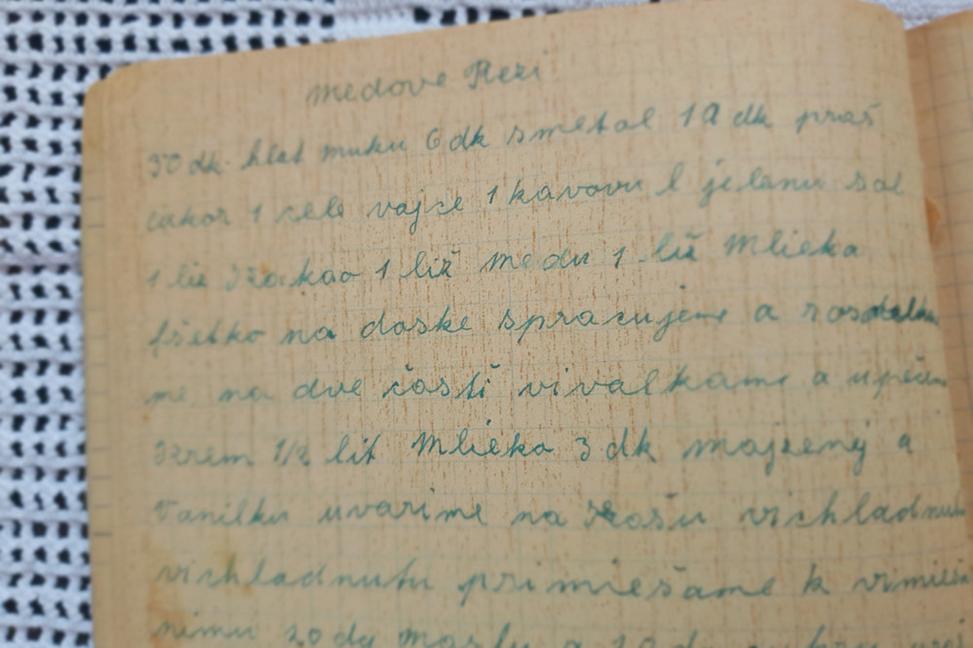 medove Rezi
30 dk. hlat muku 6 dk smetol 10 dk praš
cukor 1 cele vajce 1 kavovu l jelenu sol
1 liž kakao 1 liž medu 1 liž Mlieka
fšetko na doske spracujeme a
me na dve časti vivalkame a
krem 1/2 lit Mlieka 3 dk majzeny a
Vanilku uvarime na kašu
vichladnutu primiešame k
nimu